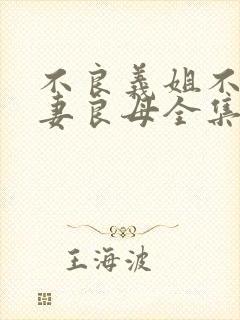 不良義姐不
妻良母全集
王海波